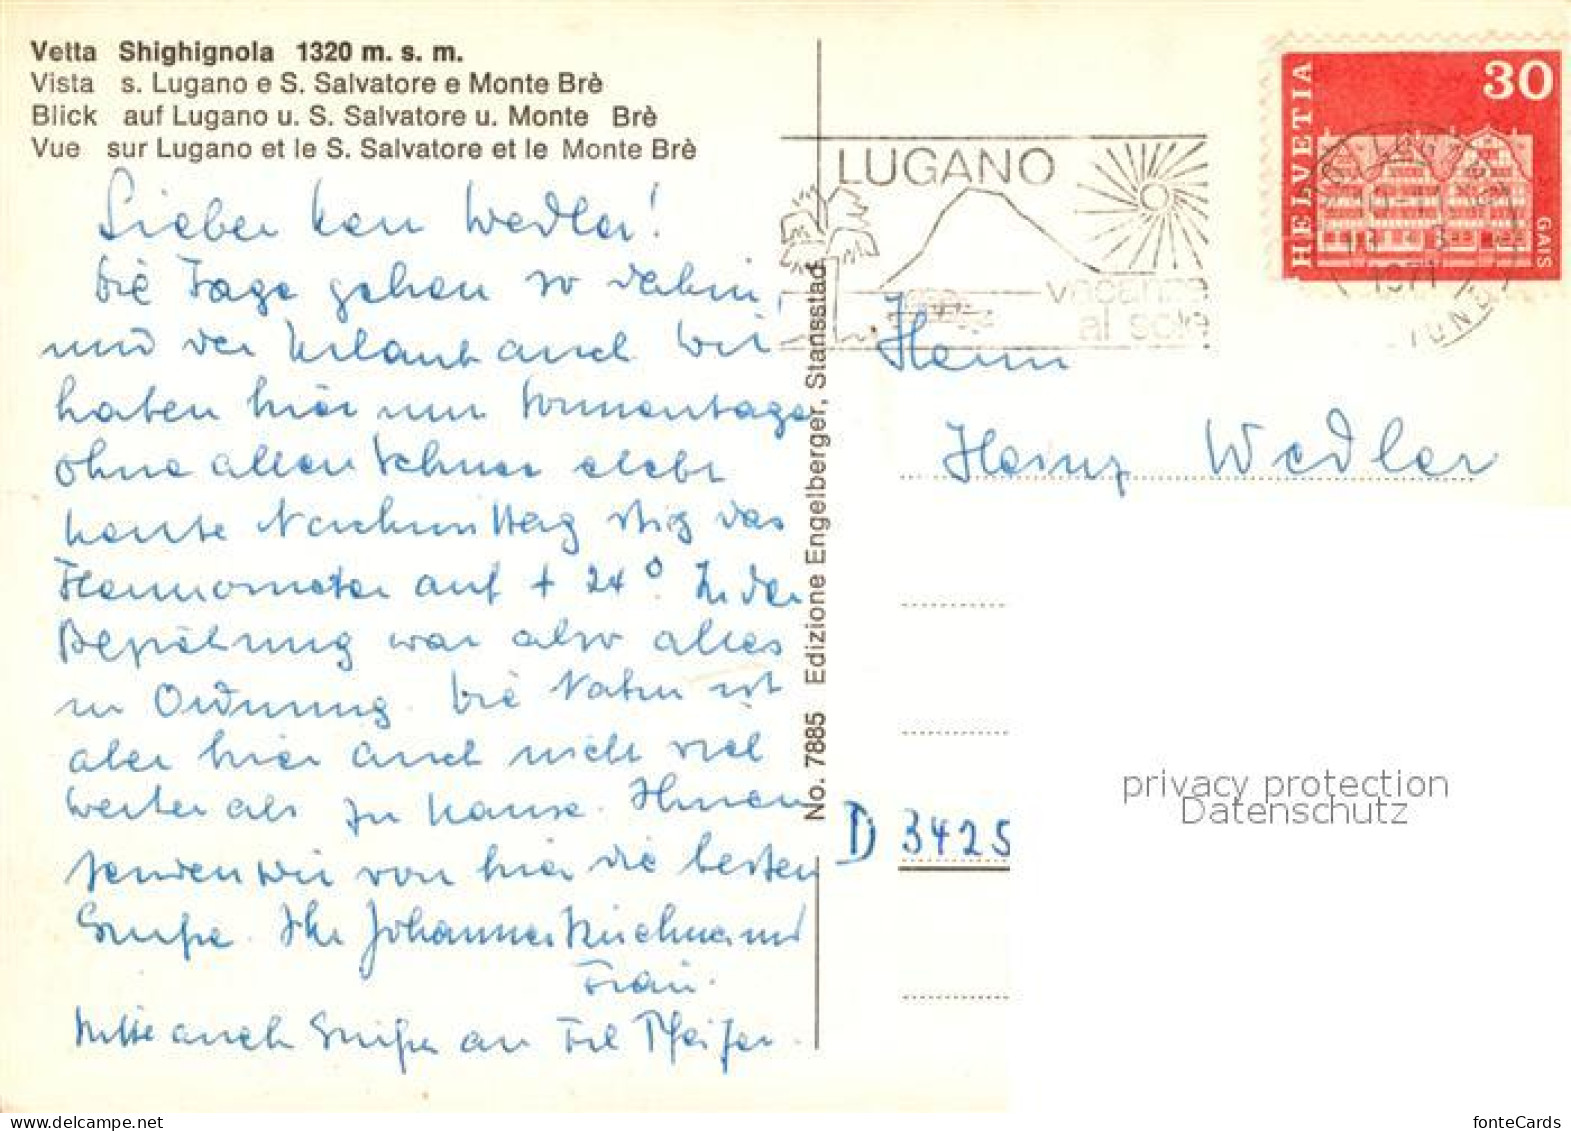 Vetta Shighignola 1320 m. s. m.
Vista s. Lugano e S. Salvatore e Monte Brè
Blick auf Lugano u. S. Salvatore u. Monte Brè
Vue sur Lugano et le S. Salvatore et le Monte Brè
Lieber Herr Wedler!
Die Tage gehen so dahin,
und der Urlaub auch. Wir
haben hier nur Sonnentage
ohne allen Schnee
heute Nachmittag stieg das
Thermometer auf + 24° In der
war also alles
in Ordnung. Die Natur ist
aber hier auch nicht viel
weiter als zu Hause. Ihnen
senden wir von hier die besten
Grüße. Ihr Johannes und
Frau.
Bitte auch Grüße an Frl Pfeifer.
No. 7885 Edizione Engelberger, Stansstad
LUGANO
vacanze
al sole
HELVETIA
30
GAIS
LUGANO
1971
Herrn
Heinz Wedler
D 3425
privacy protection
Datenschutz
fonteCards